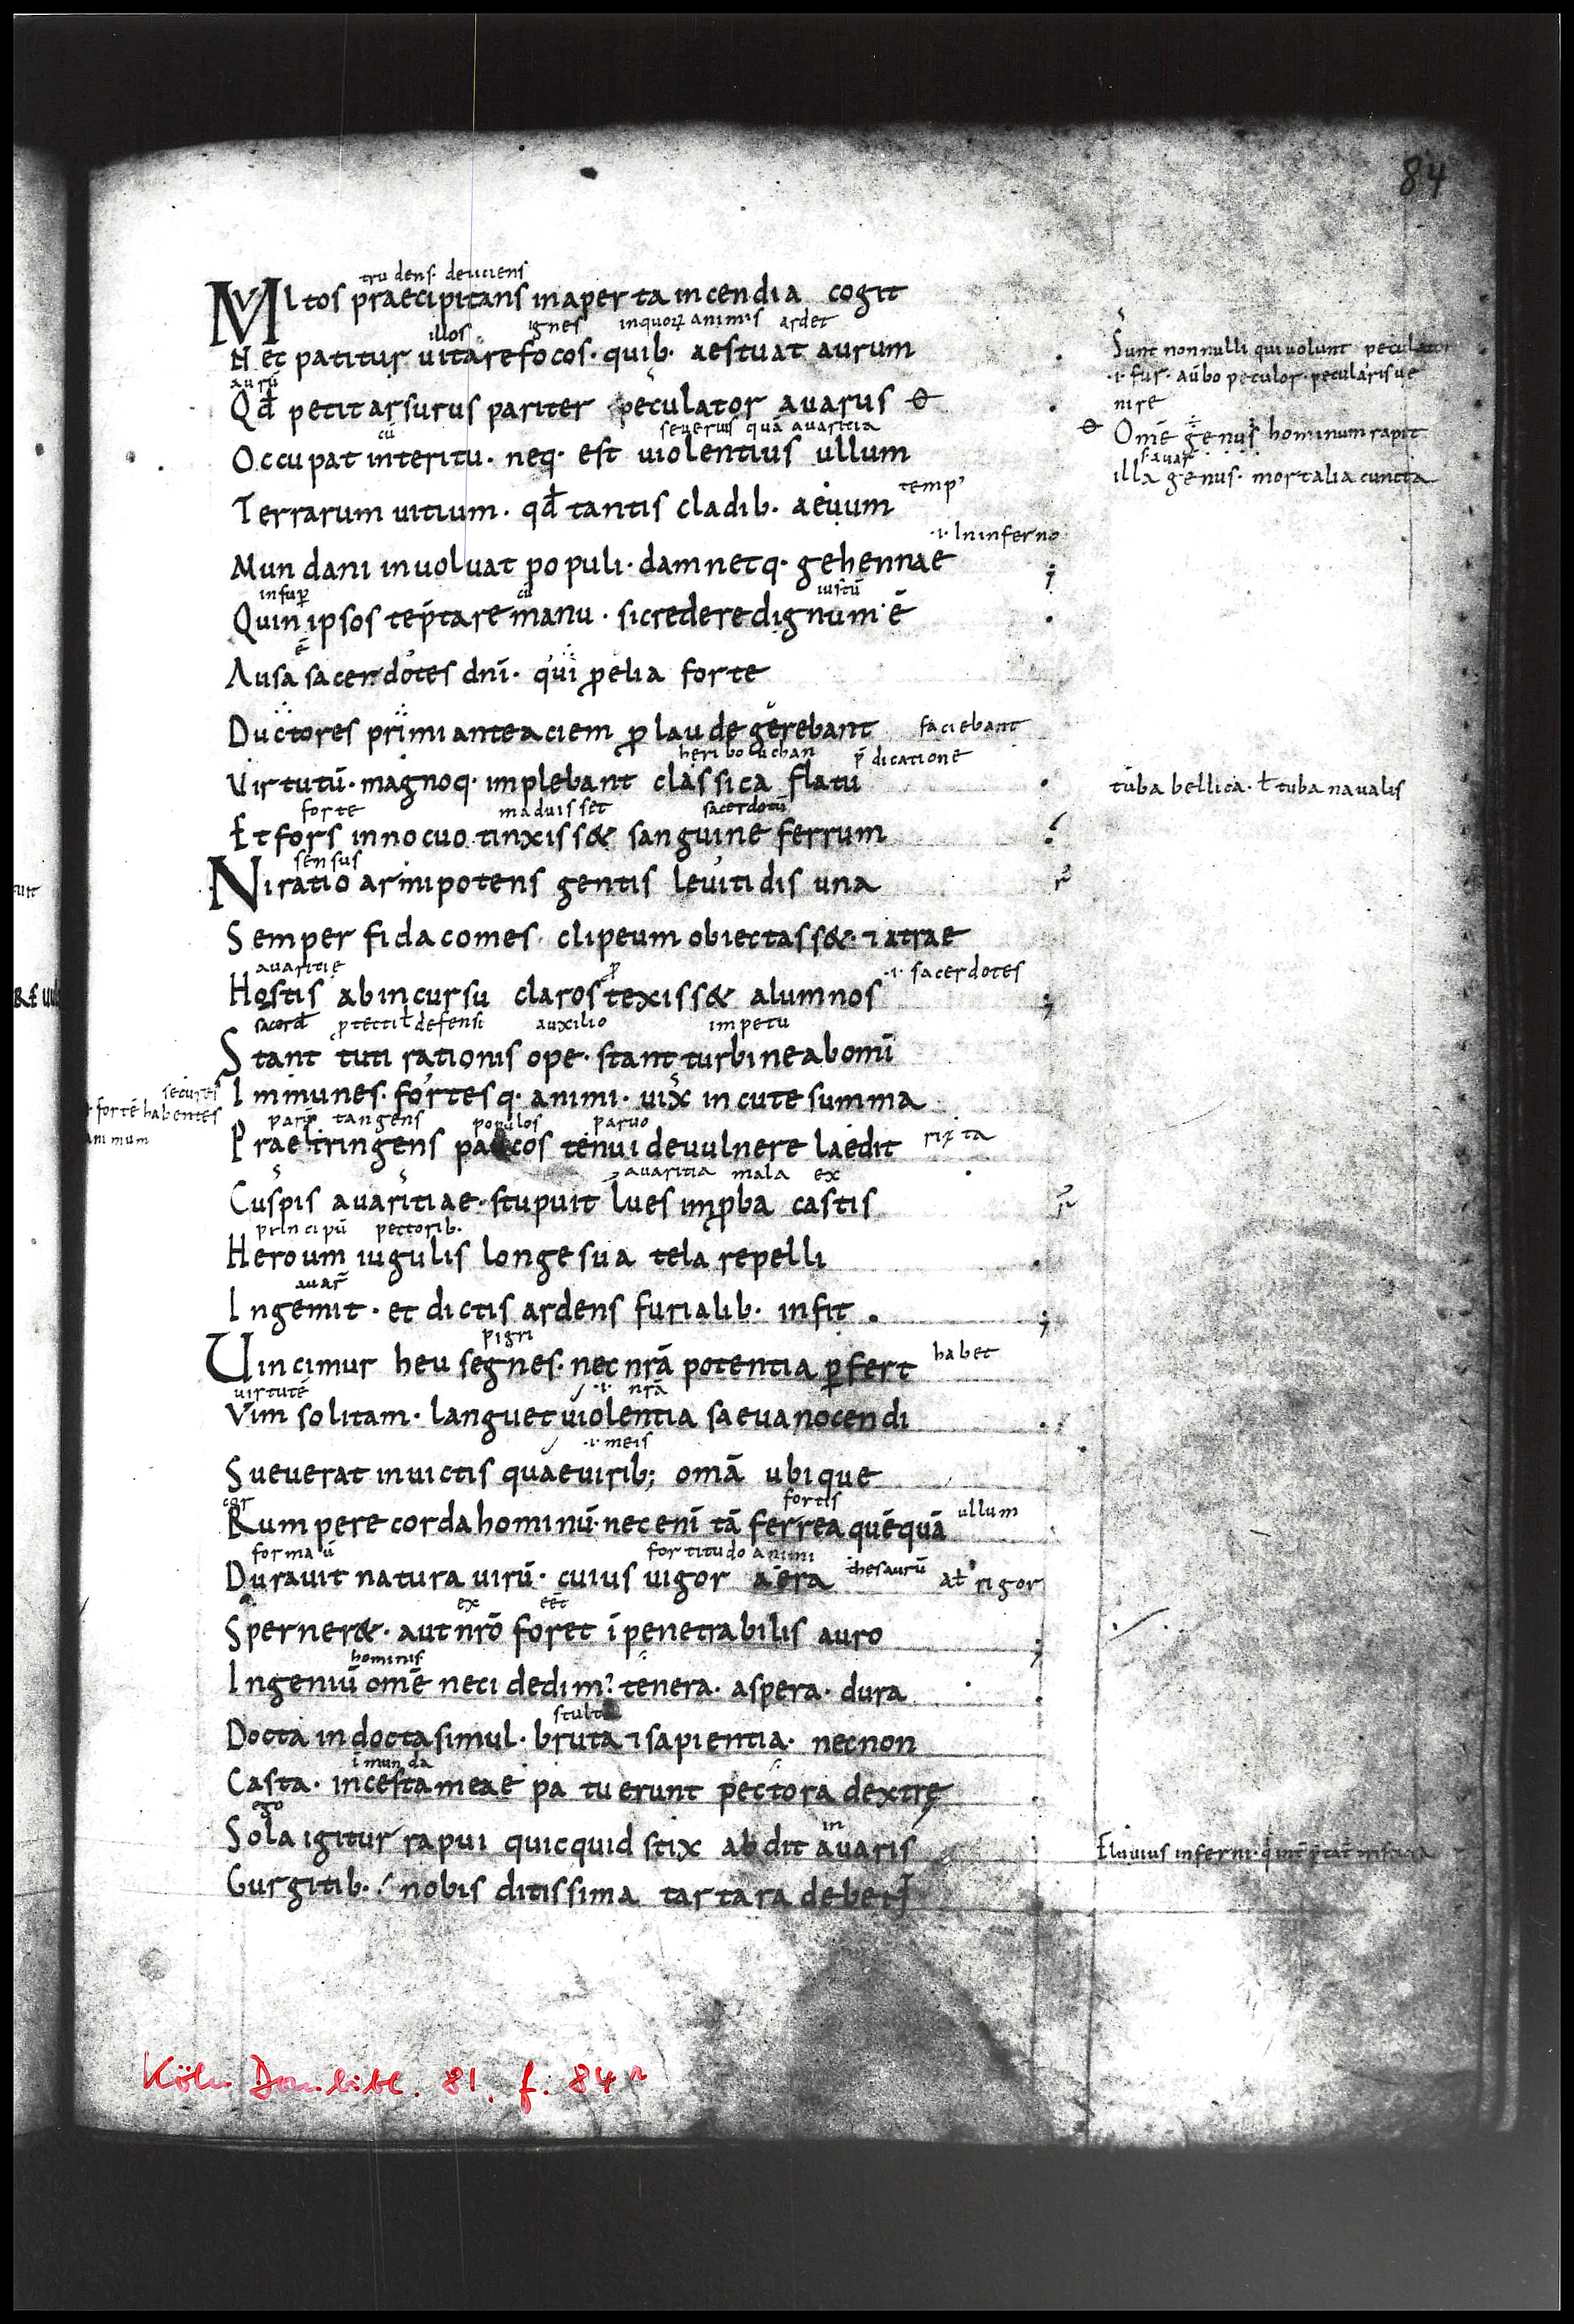 84
trudens. deiiciens
MVltos praecipitans in aperta incendia cogit
illos ignes inquorꝝ animis ardet
Nec patitur vitare focos· quib· aestuat aurum
aurū
Qđ petit arsurus pariter peculator avarus
cū severius quā avaritia
Occupat interitu· neq· est violentius ullum
temp'
Terrarum vitium· qđ tantis cladib· aevum
·i· In inferno
Mundani involvat populi· damnetq· gehennae
insuꝑ cū iustū
Quin ipsos tēptare manu· si credere dignum ē
ē
Ausa sacerdotes dnī· qui ꝓelia forte
faciebant
Ductores primi ante aciem ꝓ laude gerebant
heribouchan p̄dicatione
Virtutū· magnoq· implebant classica flatu
forte maduisset sacerdotū
Et fors innocuo tinxiss& sanguine ferrum
sensus
Ni ratio armipotens gentis levitidis una
Semper fida comes· clipeum obiectass&· ⁊ atrae
avaritie ꝓ ·i· sacerdotes
Hostis ab incursu claros texiss& alumnos
sacerđ ꝓtecti ł defensi auxilio impetu
Stant tuti rationis ope· stant turbine ab omī
secures
Immunes· fortesq· animi· vix in cute summa
forte habentes
animum
parū tangens populos parvo
Praestringens paucos tenui de vulnere laedit
avaritia mala ex
Cuspis avaritiae· stupuit lues imꝓba castis
principū pectorib·
Heroum iugulis longe sua tela repelli
avar̄
Ingemit· et dictis ardens furialib· infit·
pigri habet
Uincimur heu segnes· nec nrā potentia ꝑfert
virtutē ·i· nrā
Vim solitam· languet violentia saeva nocendi
·i· meis
Sueverat invictis quae virib; omā ubique
cor fortis ullum
Rumpere corda hominū· nec enī tā ferrea quēquā
fortitudo animi thesaurū
Duravit natura virū· cuius vigor aera ał rigor
ex eēt
Sperner&· aut nrō foret īpenetrabilis auro
hominis
Ingeniū omē neci dedim'· tenera· aspera· dura
stulta
Docta indocta simul· bruta ⁊ sapientia· necnon
īmunda
Casta· incesta meae patuerunt pectora dextrę
ego in
Sola igitur rapui quicquid stix abdit avaris
Gurgitib· nobis ditissima tartara debent
Sunt nonnulli qui volunt peculator
·i· fur· avbo peculor· pecularis ve
nire
Omē genus hominum rapit
s avar̄
illa genus· mortalia cuncta
tuba bellica· ł tuba navalis
Fluvius inferni·
Köln Dombibl. 81, f. 84r